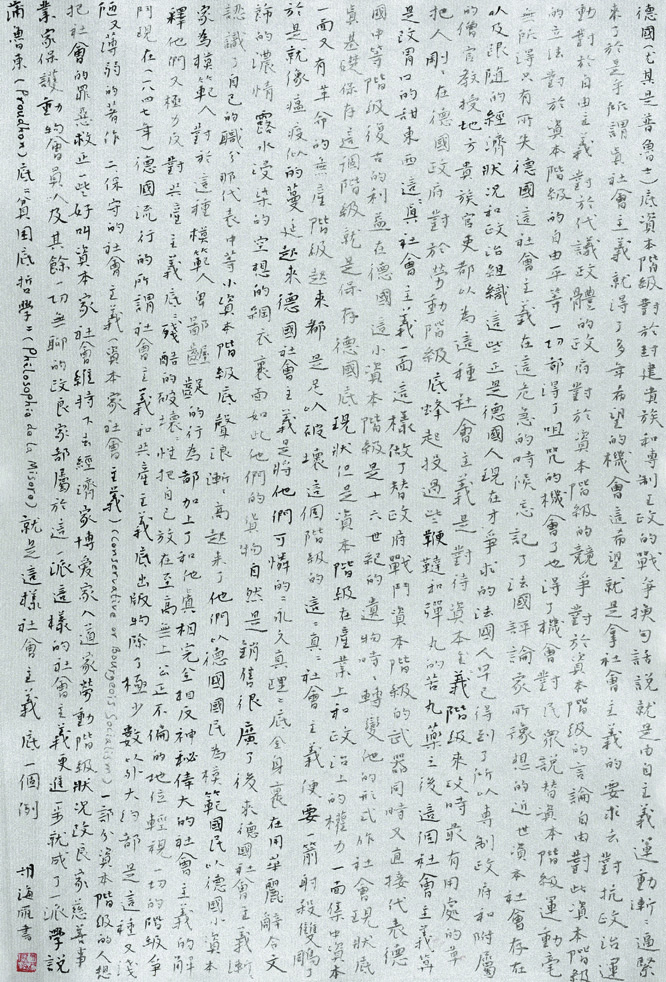 德國(尤其是普魯士)底資本階級對於封建貴族和專制王政的戰爭換句話說就是由自主義運動漸漸逼緊
來了於是乎所謂真社會主義就得了多年希望的機會這希望就是拿社會主義的要求去對抗政治運
動對於自由主義對於代議政體的政府對於資本階級的競爭對於資本階級的言論自由對些資本階級
的立法對於資本階級的自由平等一切都得了咀咒的機會了也得了機會對民眾說替資本階級運動毫
無所得只有所失德國這社會主義在這危急的時候忘記了法國評論家所豫想的近世資本社會存在
以及跟隨的經濟狀況和政治組織這些正是德國人現在才爭求的法國人早已得到了所以專制政府和附屬
的僧官教授地方貴族官吏都以為這種社會主義是對待資本主義階級來攻時最有用處的草
把人剛在德國政府對於勞動階級底蜂起投過些鞭韃和彈丸的苦丸藥之後這個社會主義算
是改胃口的甜東西這真社會主義一面這樣做了替政府戰鬥資本階級的武器同時又直接代表德
國中等階級復古的利益在德國這小資本階級是十六世紀的遺物時時轉變他的形式作社會現狀底
真基礎保存這個階級就是保存德國底現狀但是資本階級在產業上和政治上的權力一面集中資本
一面又有革命的無產階級起來都是足以破壞這個階級的這真社會主義便要一箭射殺雙鵰了
於是就像瘟疫似的蔓延起來德國社會主義是將他們可憐的永久真理底全身裹在用華麗辭合文
飾的濃情露水浸染的空想的網衣裏面如此他們的貨物自然是銷售很廣了後來德國社會主義漸
認識了自己的職分那代表中等小資本階級底聲浪漸高起來了他們以德國國民為模範國民以德國小資本
家為模範人對於這種模範人卑鄙齷齪的行為都加上了和他真相完全相反神秘偉大的社會主義的解
釋他們又極力反對共產主義底殘酷的破壞性把自己放在至高無上公正不偏的地位輕視一切的階級爭
鬥現在(一八四七年)德國流行的所謂社會主義和共產主義底出版物除了極少數以外大約都是這種又淺
陋又薄弱的著作 二保守的社會主義(資本家社會主義)(Conservative or Bourgeois Socialism)一部分資本階級的人想
把社會的罪惡救正一些好叫資本家社會維持下去經濟家博愛家人道家勞動階級狀況改良家慈善事
業家保護動物會員以及其餘一切無聊的改良家都屬於這一派這樣的社會主義更進一步就成了一派學說
蒲魯東(Proudhon)底貧困底哲學(Philosophie de la Misere)就是這樣社會主義底一個例 胡海龍書